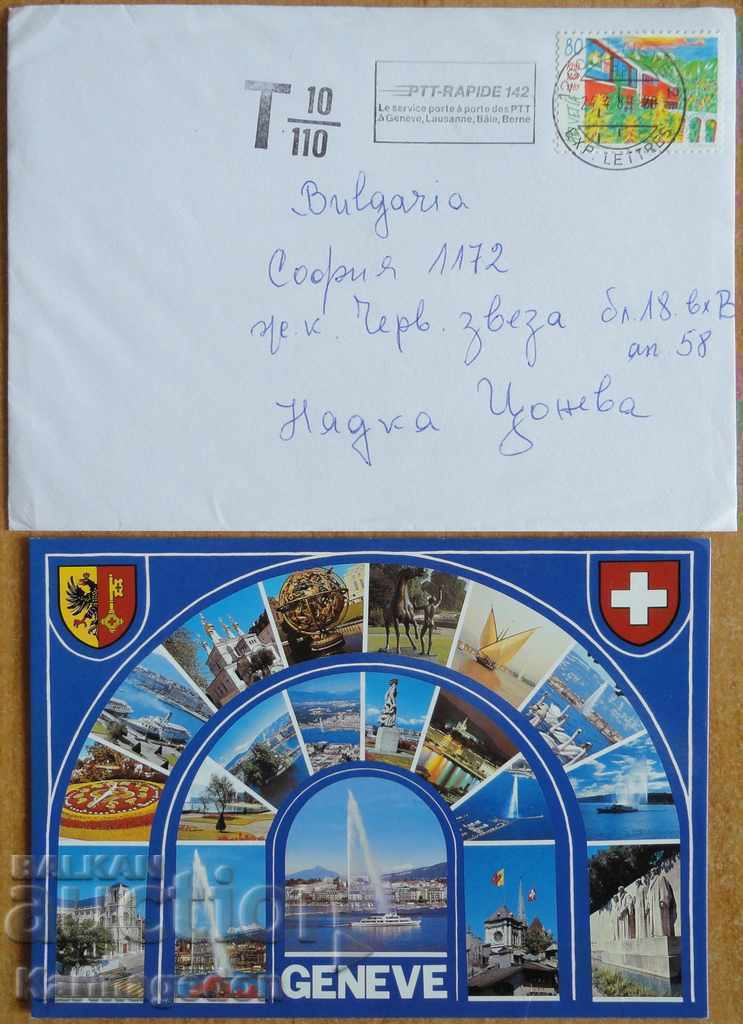 80
HELVETIA
T 10
110
PTT-RAPIDE 142
Le service porte à porte des PTT
à Genève, Lausanne, Bâle, Berne
EXP. LETTRES
Bulgaria
София 1172
ж.к. Черв. звеза бл.18. вх В
ап 58
Надка Цонева
BALKAN
auction
Karmagedon
GENEVE